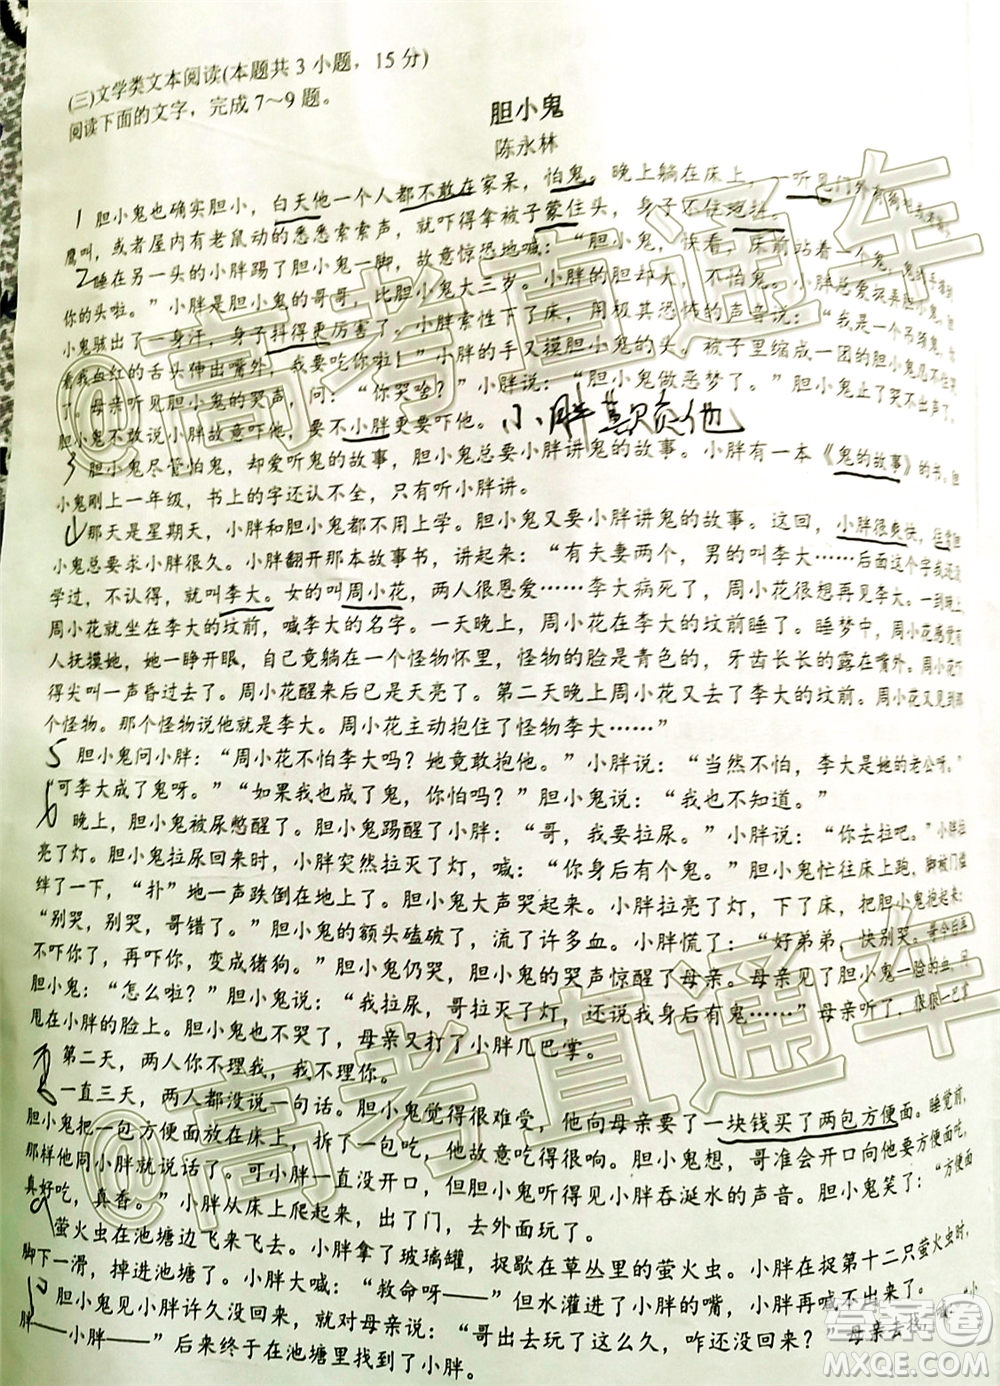 (三)文学类文本阅读(本题共3小题，15分)
阅读下面的文字，完成7～9题。
胆小鬼
陈永林
1 胆小鬼也确实胆小，白天他一个人都不敢在家呆，怕鬼。晚上躺在床上，一听见门外有
鹰叫，或者屋内有老鼠动的悉悉索索声，就吓得拿被子蒙住头，身子不住地抖。
2 睡在另一头的小胖踢了胆小鬼一脚，故意惊恐地喊：“胆小鬼，快看，床前站着一个鬼，
你的头啦。”小胖是胆小鬼的哥哥，比胆小鬼大三岁。小胖的胆却大，不怕鬼。小胖总爱捉弄胆小鬼，
小鬼骇出了一身汗，身子抖得更厉害了。小胖索性下了床，用极其恐怖的声音说：“我是一个吊颈鬼，
着我血红的舌头伸出嘴外，我要吃你啦！”小胖的手又摸胆小鬼的头。被子里缩成一团的胆小鬼
了。母亲听见胆小鬼的哭声，问：“你哭啥？”小胖说：“胆小鬼做恶梦了。”胆小鬼止了哭不出声了。
胆小鬼不敢说小胖故意吓他，要不小胖更要吓他。
小胖欺负他
3 胆小鬼尽管怕鬼，却爱听鬼的故事，胆小鬼总要小胖讲鬼的故事。小胖有一本《鬼的故事》的书。胆
小鬼刚上一年级，书上的字还认不全，只有听小胖讲。
4 那天是星期天，小胖和胆小鬼都不用上学。胆小鬼又要小胖讲鬼的故事。这回，小胖很爽快，往常胆
小鬼总要求小胖很久。小胖翻开那本故事书，讲起来：“有夫妻两个，男的叫李大……后面这个字我还没
学过，不认得，就叫李大。女的叫周小花，两人很恩爱……李大病死了，周小花很想再见李大。一到晚上，
周小花就坐在李大的坟前，喊李大的名字。一天晚上，周小花在李大的坟前睡了。睡梦中，周小花感觉有
人抚摸她，她一睁开眼，自己竟躺在一个怪物怀里，怪物的脸是青色的，牙齿长长的露在嘴外。周小花吓
得尖叫一声昏过去了。周小花醒来后已是天亮了。第二天晚上周小花又去了李大的坟前。周小花又见到那
个怪物。那个怪物说他就是李大。周小花主动抱住了怪物李大……”
5 胆小鬼问小胖：“周小花不怕李大吗？她竟敢抱他。”小胖说：“当然不怕，李大是她的老公呀。”
“可李大成了鬼呀。”“如果我也成了鬼，你怕吗？”胆小鬼说：“我也不知道。”
6 晚上，胆小鬼被尿憋醒了。胆小鬼踢醒了小胖：“哥，我要拉尿。”小胖说：“你去拉吧。”小胖拉
亮了灯。胆小鬼拉尿回来时，小胖突然拉灭了灯，喊：“你身后有个鬼。”胆小鬼忙往床上跑，脚被门槛
绊了一下，“扑”地一声跌倒在地上。胆小鬼大声哭起来。小胖拉亮了灯，下了床，把胆小鬼抱起来：
“别哭，别哭，哥错了。”胆小鬼的额头磕破了，流了许多血。小胖慌了：“好弟弟，快别哭。哥今后再
不吓你了，再吓你，变成猪狗。”胆小鬼仍哭，胆小鬼的哭声惊醒了母亲。母亲见胆小鬼一脸的血，问
胆小鬼：“怎么啦？”胆小鬼说：“我拉尿，哥拉灭了灯，还说我身后有鬼……”母亲听了，狠狠一巴掌
甩在小胖的脸上。胆小鬼也不哭了，母亲又打了小胖几巴掌。
7 第二天，两人你不理我，我不理你。
8 一直三天，两人都没说一句话。胆小鬼觉得很难受，他向母亲要了一块钱买了两包方便面。睡觉前，
胆小鬼把一包方便面放在床上，拆了一包吃，他有意吃得很响。胆小鬼想，哥准会开口向他要方便面吃，
那样他同小胖就说话了。可小胖一直没开口，但胆小鬼听得见小胖吞涎水的声音。胆小鬼笑了：“方便面
真好吃，真香。”小胖从床上爬起来，出了门，去外面玩了。
9 萤火虫在池塘边飞来飞去。小胖拿了玻璃罐，捉歇在草丛里的萤火虫。小胖在捉第十二只萤火虫时，
脚下一滑，掉进池塘了。小胖大喊：“救命呀——”但水灌进了小胖的嘴，小胖再喊不出来了。
10 胆小鬼见小胖许久没回来，就对母亲说：“哥出去玩了这么久，咋还没回来？”母亲去找 “小
胖——小胖——”后来终于在池塘里找到了小胖。
@高考直通车
@高考直通车
答案圈
MXQE.COM